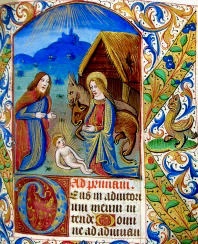 Ad primam.
Eus in adiutori
um meum in
tende Domi
ne ad adiuuan